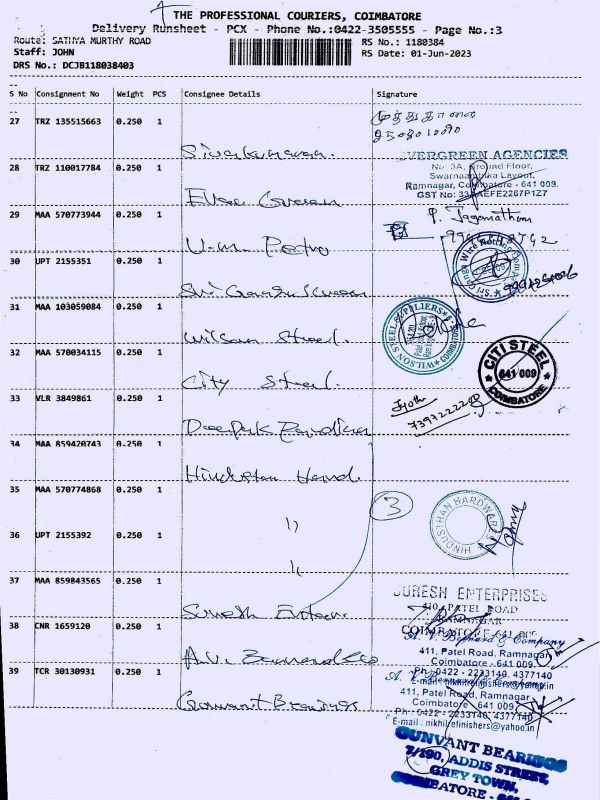 THE PROFESSIONAL COURIERS, COIMBATORE
Delivery Runsheet - PCX - Phone No.:0422-3505555 - Page No.:3
Route: SATHYA MURTHY ROAD
RS No.: 1180384
Staff: JOHN
RS Date: 01-Jun-2023
DRS No.: DCJB118038403
S No Consignment No Weight PCS Consignee Details Signature
27 TRZ 135515663 0.250 1
Sivakumaran.
EVERGREEN AGENCIES
28 TRZ 110017784 0.250 1
No: 3A, Ground Floor,
Swarnaambika Layout,
Ramnagar, Coimbatore - 641 009.
GST No: 33AAEFE2267P1Z7
29 MAA 570773944 0.250 1
P. Jaganathan
U.M.
30 UPT 2155351 0.250 1
Sri
31 MAA 103059084 0.250 1
WILSON STEEL SUPPLIERS
COIMBATORE
Wilson Steel.
32 MAA 570034115 0.250 1
CITI STEEL
641 009
COIMBATORE
City Steel.
33 VLR 3849861 0.250 1
Jyothi
Deepak
34 MAA 859420743 0.250 1
Hindustan Hard.
35 MAA 570774868 0.250 1
3
HINDUSTHAN HARDWARES
"
36 UPT 2155392 0.250 1
"
37 MAA 859843565 0.250 1
SURESH ENTERPRISES
410, PATEL ROAD
RAMNAGAR
COIMBATORE-641 009
Suresh Enter
38 CNR 1659120 0.250 1
A. V. Bernard & Company
411, Patel Road, Ramnagar
Coimbatore - 641 009.
Ph : 0422 - 2233140, 4377140
E-mail: nikhilrefinishers@yahoo.in
A.V. Bernard & Co
39 TCR 30130931 0.250 1
A. V. Bernard & Company
411, Patel Road, Ramnagar
Coimbatore - 641 009.
Ph : 0422 - 2233140, 4377140
E-mail : nikhilrefinishers@yahoo.in
Gunvant Bearings
GUNVANT BEARINGS
7/190, ADDIS STREET,
GREY TOWN,
COIMBATORE -